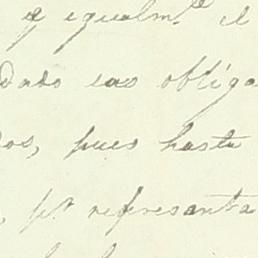 y igualm.te el
dado las obliga
os, pues hasta
, pr representa